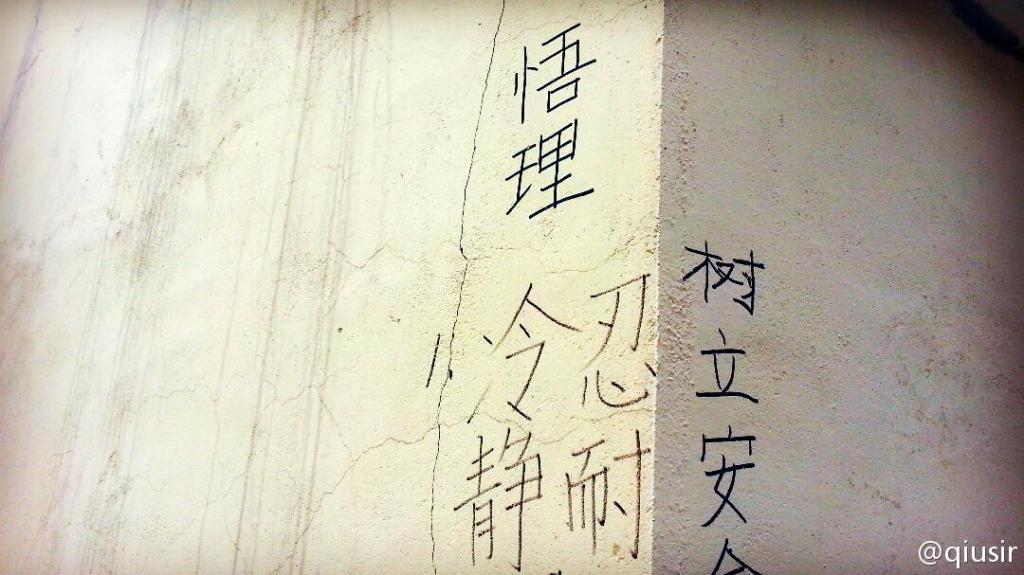 悟理
忍耐
冷静
树立安
@qiusir